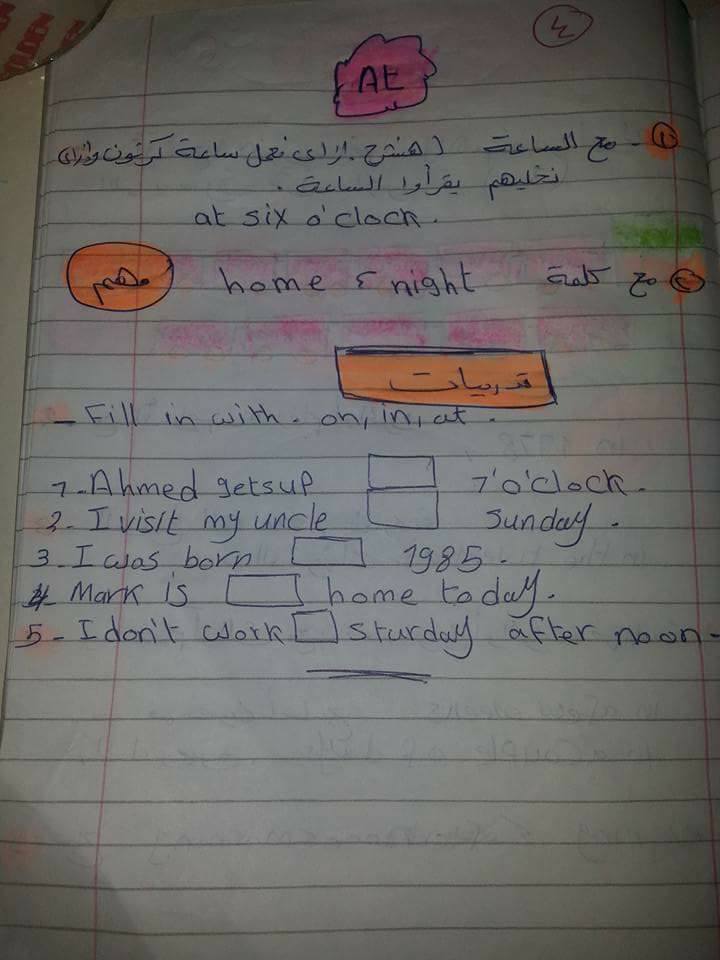 ٤
At
① - مع الساعة ( هنشرح ازاى نعمل ساعة كرتون وازاى
نخليهم يقرأوا الساعة .
at six o'clock.
② مع كلمة home & night مهم
تدريبات
- Fill in with . on, in, at .
1 - Ahmed gets up 7 o'clock .
2 - I visit my uncle Sunday .
3 - I was born 1985 .
4 - Mark is home today .
5 - I don't work Sturday after noon -